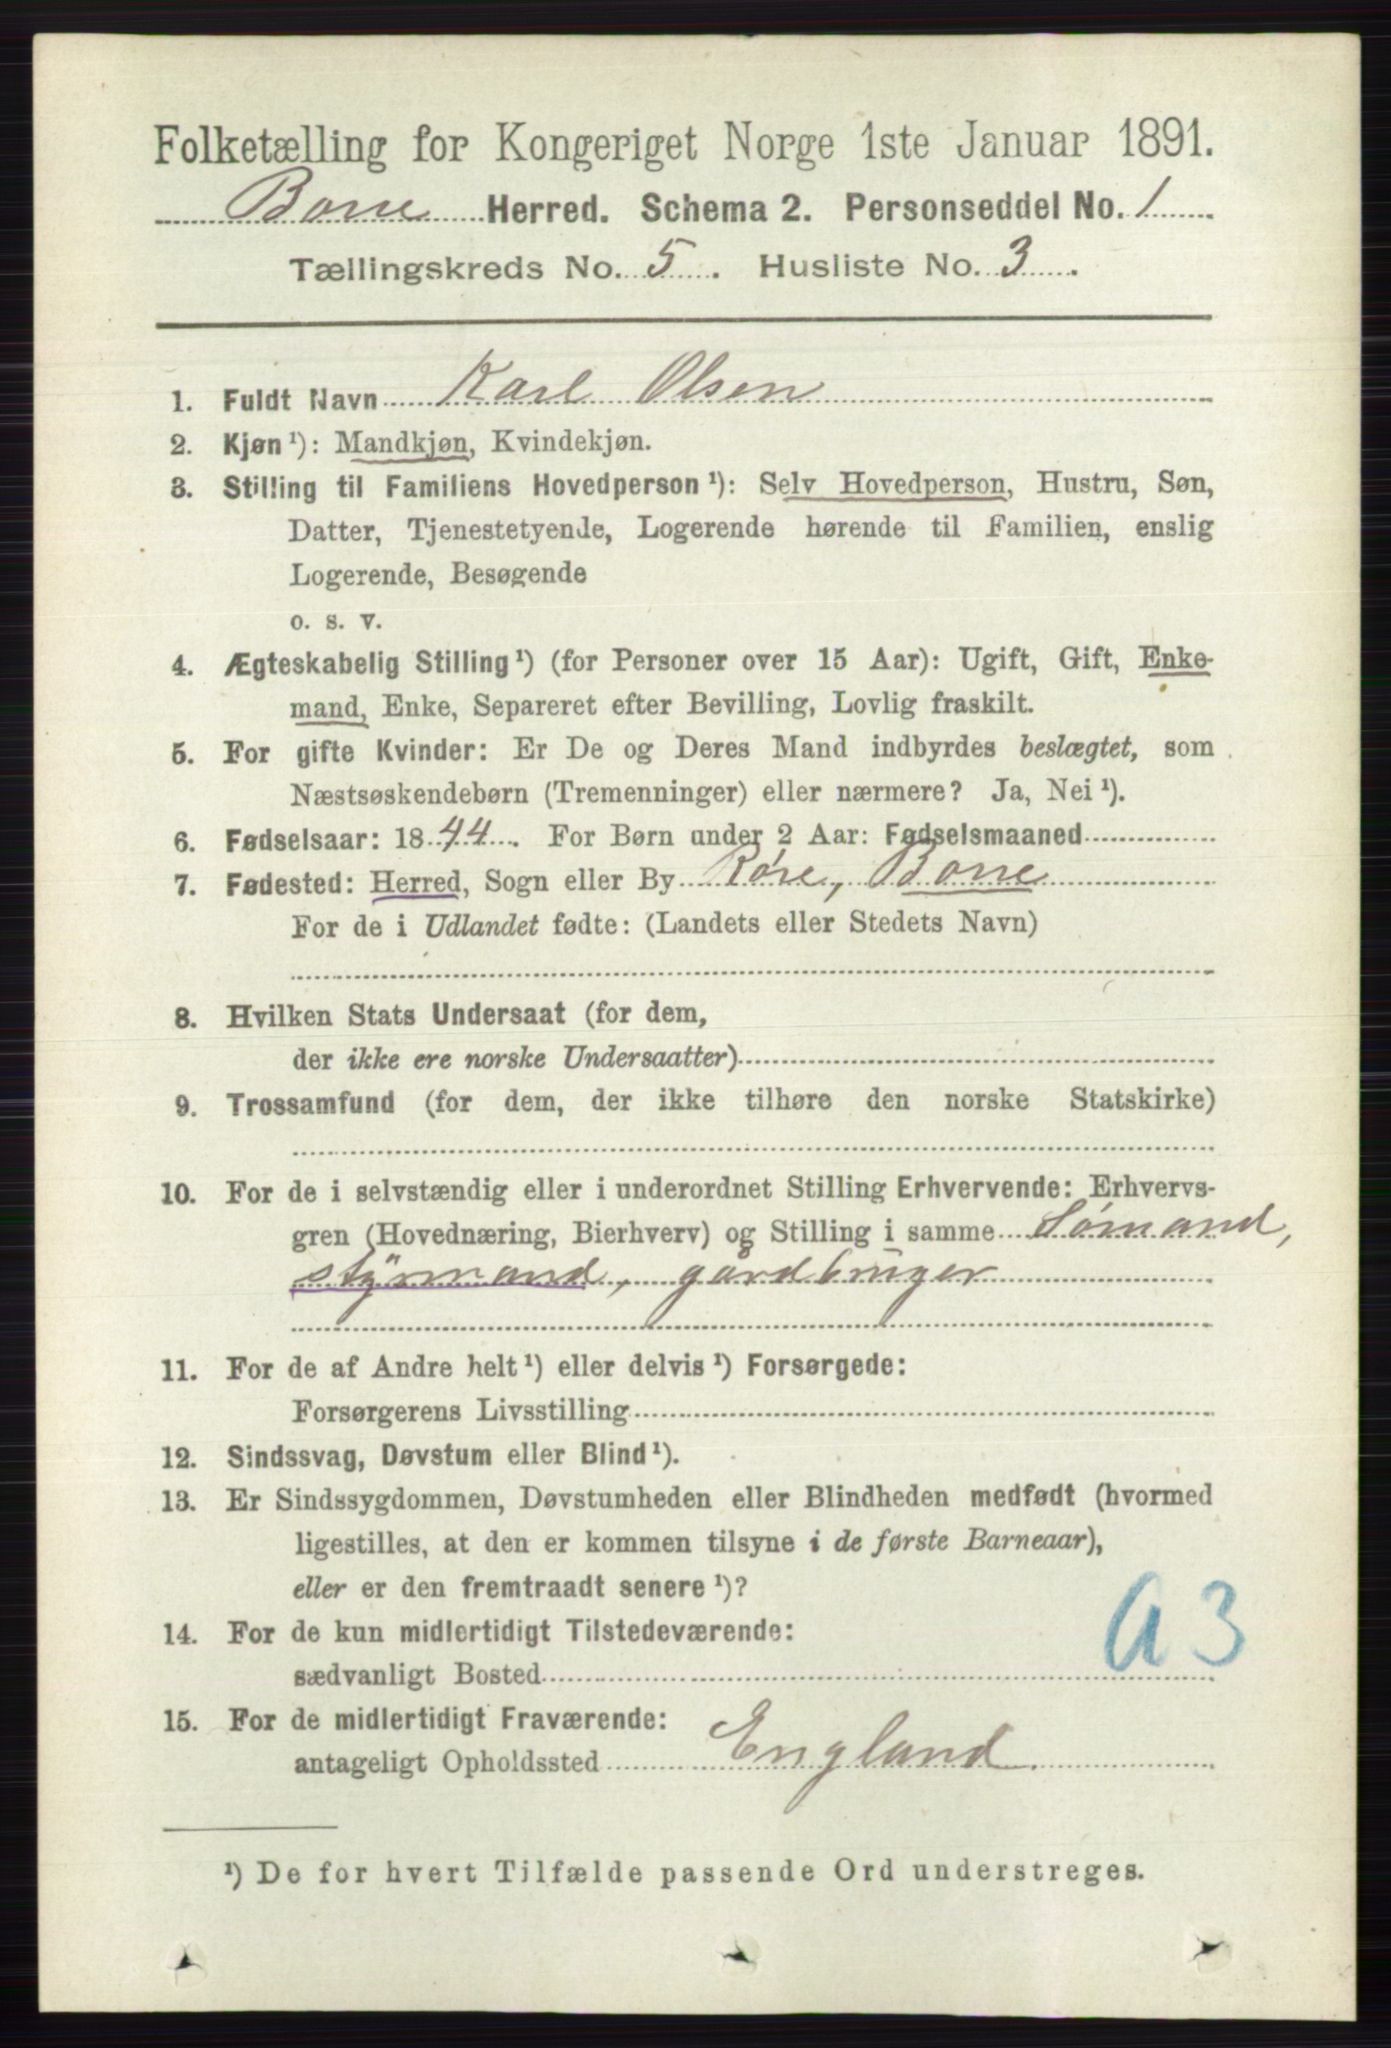 Folketælling for Kongeriget Norge 1ste Januar 1891.
Borre Herred. Schema 2. Personseddel No. 1
Tællingskreds No. 5. Husliste No. 3.
1. Fuldt Navn Karl Olsen
2. Kjøn ¹): Mandkjøn, Kvindekjøn.
3. Stilling til Familiens Hovedperson ¹): Selv Hovedperson, Hustru, Søn,
Datter, Tjenestetyende, Logerende hørende til Familien, enslig
Logerende, Besøgende
o. s. v.
4. Ægteskabelig Stilling ¹) (for Personer over 15 Aar): Ugift, Gift, Enke-
mand, Enke, Separeret efter Bevilling, Lovlig fraskilt.
5. For gifte Kvinder: Er De og Deres Mand indbyrdes beslægtet, som
Næstsøskendebørn (Tremenninger) eller nærmere? Ja, Nei ¹).
6. Fødselsaar: 1844. For Børn under 2 Aar: Fødselsmaaned
7. Fødested: Herred, Sogn eller By Røre, Borre
For de i Udlandet fødte: (Landets eller Stedets Navn)
8. Hvilken Stats Undersaat (for dem,
der ikke ere norske Undersaatter)
9. Trossamfund (for dem, der ikke tilhøre den norske Statskirke)
10. For de i selvstændig eller i underordnet Stilling Erhvervende: Erhvervs-
gren (Hovednæring, Bierhverv) og Stilling i samme Sømand,
styrmand, gårdbruger
11. For de af Andre helt ¹) eller delvis ¹) Forsørgede:
Forsørgerens Livsstilling
12. Sindssvag, Døvstum eller Blind ¹).
13. Er Sindssygdommen, Døvstumheden eller Blindheden medfødt (hvormed
ligestilles, at den er kommen tilsyne i de første Barneaar),
eller er den fremtraadt senere ¹)?
G 3
14. For de kun midlertidigt Tilstedeværende:
sædvanligt Bosted
15. For de midlertidigt Fraværende:
antageligt Opholdssted England.
¹) De for hvert Tilfælde passende Ord understreges.